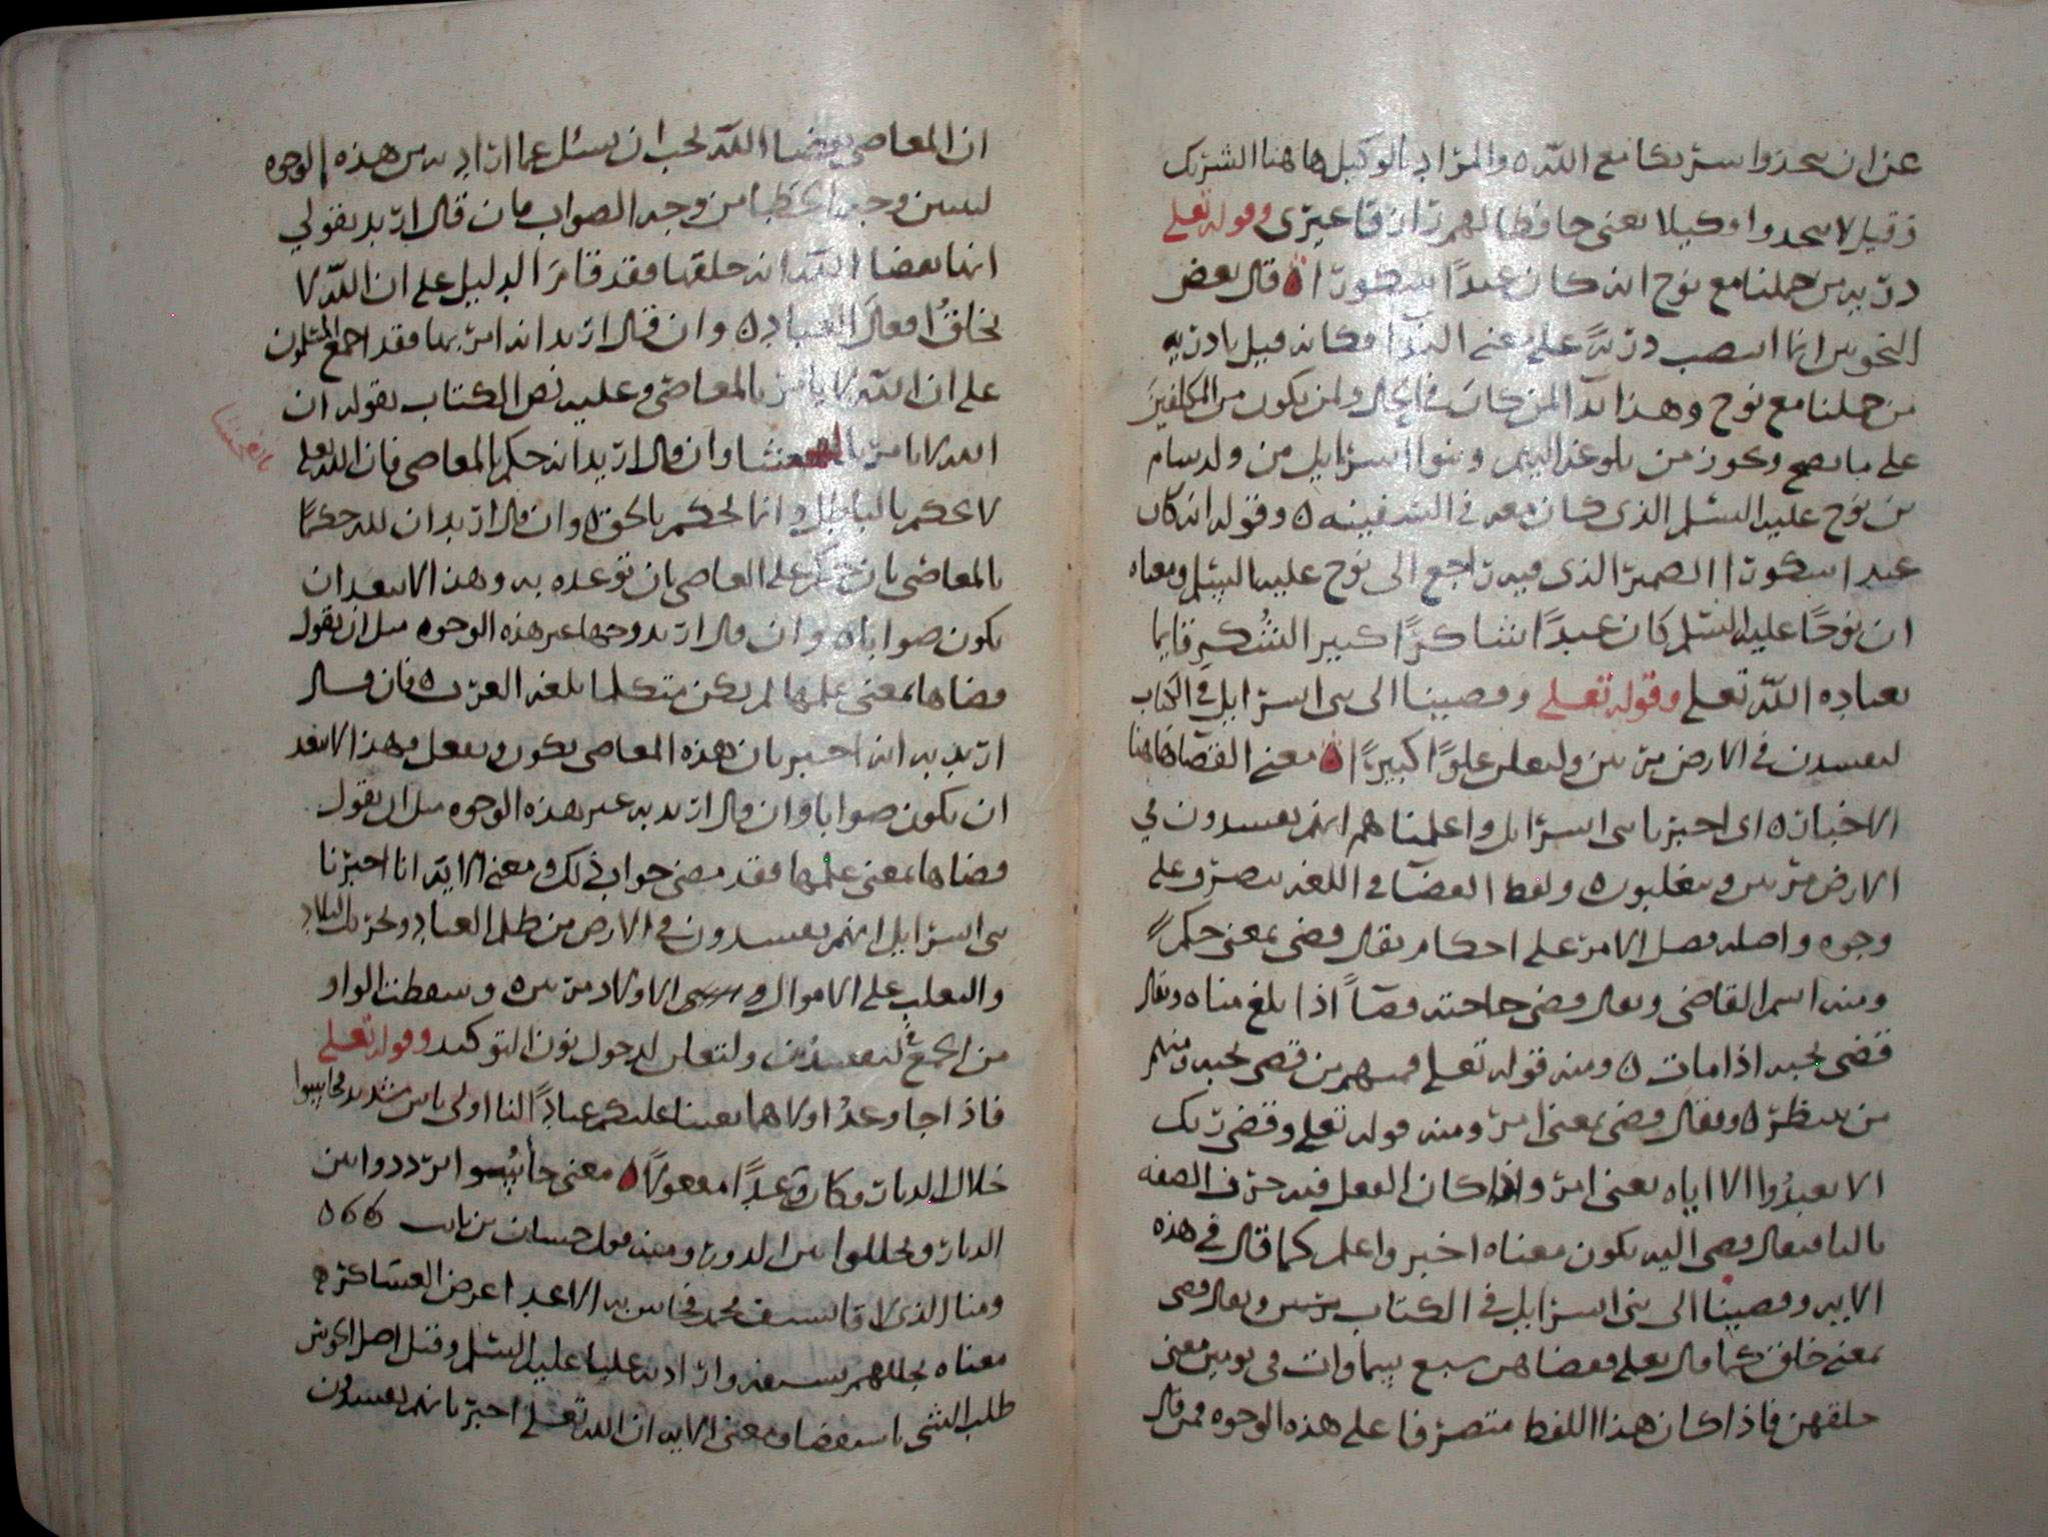 عن ان يتخذوا شريكا مع الله ه والمراد بالوكيل هاهنا الشريك
وقيل لا يتخذوا وكيلا يعني حافظا لهم رازقا غيري وقوله تعلى
ذرية من حملنا مع نوح انه كان عبدًا شكورا ه قال بعض
النحويين انما انتصب ذريةً على معنى الندا فكانه قيل يا ذرية
من حملنا مع نوح وهذا ندآ لمن كان في الحال ولمن يكون من المكلفين
على ما يصح ويجوز من بلوغه اليهم وبنوا اسرايل من ولد سام
بن نوح عليه السلم الذي كان معه في السفينه ه وقوله انه كان
عبدا شكورا الضمير الذي فيه راجع الى نوح عليه السلم ومعناه
ان نوحًا عليه السلم كان عبدًا شاكرًا كبير الشكر قايما
بعباده الله تعلى وقوله تعلى وقضينا الى بني اسرايل في الكتاب
لتفسدن في الارض مرتين ولتعلن علوًا كبيرًا ه معنى القضا هاهنا
الاخبار ه اي اخبرنا بني اسرايل واعلمناهم انهم يفسدون في
الارض مرتين ويتغلبون ه ولفظ القضآ في اللغه يتصرف على
وجوه واصله فصل الامر على احكام يقال قضى بمعنى حكم
ومنه اسم القاضي ويقال قضى حاجته قضآً اذا بلغ مناه ويقال
قضى نحبه اذا مات ه ومنه قوله تعلى فمنهم من قضى نحبه ومنهم
من ينتظر ه ويقال قضى بمعنى امر ومنه قوله تعلى وقضى ربك
الا تعبدُوا الا اياه يعني امر واذا كان الفعل فيه حرف الصفه
بالى فيقال قضى اليه يكون معناه اخبر واعلم كما قال في هذه
الايه وقضينا الى بني اسرايل في الكتاب ويقال قضى
بمعنى خلق كما قال تعلى فقضاهن سبع سماوات في يومين معنى
خلقهن فاذا كان هذا اللفظ متصرفا على هذه الوجوه فمن قال
ان المعاصي بقضا الله يجب ان يسئل عما اراد به من هذه الوجوه
ليبين وجه الخطا من وجه الصواب فان قال اريد بقولي
انها بقضا الله انه خلقها فقد قام الدليل على ان الله لا
يخلق افعالَ العباد ه وان قال اريد انه امر بها فقد اجمع المسلمون
على ان الله لا يامر بالمعاصي وعليه نص الكتاب بقوله ان
الله لا يامر بالفحشا وان قال اريد انه حكم بالمعاصي فان الله تعلى
بالفحشا
لا يحكم بالباطل وانما يحكم بالحق ه وان قال اريد ان لله حكمًا
بالمعاصي بان حكم على العاصي بان توعده به وهذا لا يبعد ان
يكون صوابا ه وان قال اريد وجها غير هذه الوجوه مثل ان يقول
قضاها بمعنى علمها لم يكن متكلما بلغه العرب ه فان قال
اريد به انه اخبر بان هذه المعاصي تكون وتفعل فهذا لا يبعد
ان يكون صوابا وان قال اريد به غير هذه الوجوه مثل ان يقول
قضاها بمعنى علمها فقد مضى جواب ذلك ومعنى الايه انا اخبرنا
بني اسرايل انهم يفسدون في الارض من ظلم العباد وتخريب البلاد
والتغلب على الاموال وسبي الاولاد مرتين ه وسقطت الواو
من الجمع في لتفسدن ولتعلن لدخول نون التوكيد وقوله تعلى
فاذا جا وعدُ اولاهما بعثنا عليكم عبادًا لنا اولي باس شديد فجاسوا
خلال الديار وكان وعدًا مفعولاً ه معنى جاسُوا ترددوا بين
الديار وتخللوا بين الدور ومنه قول حسان بن ثابت ه
ومنا الذي لاقا بسيف محمد فجاس به الاعدا عرض العساكر ه
معناه تخللهم بسيفه واراد به عليا عليه السلم وقتل اصل الجوس
طلب الشي باستقصا ومعنى الايه ان الله تعلى اخبر بانهم يفسدون